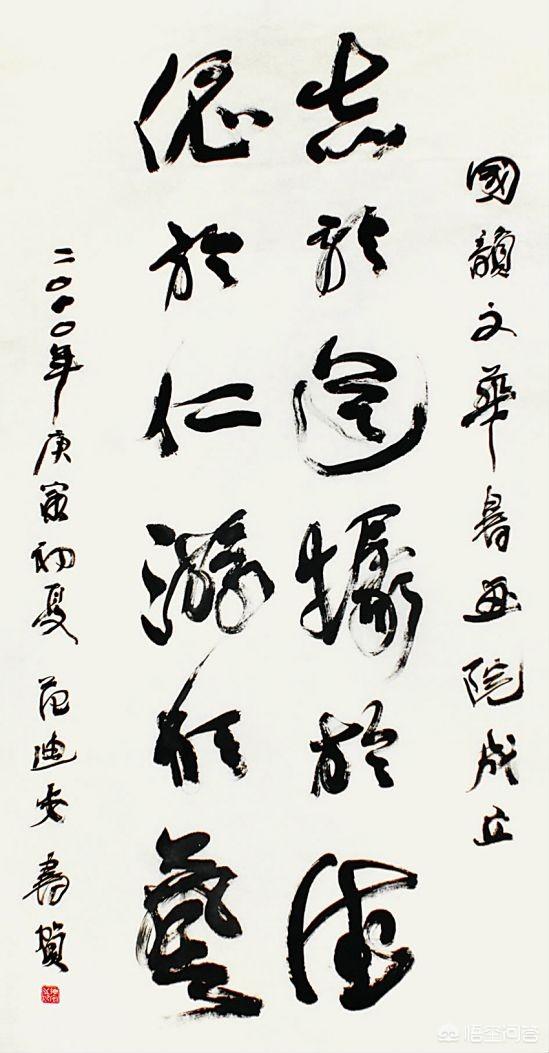 國韻文華書畫院成立
志於道據於德
依於仁游於藝
二〇一〇年庚寅初夏 范迪安書賀
悟空问答